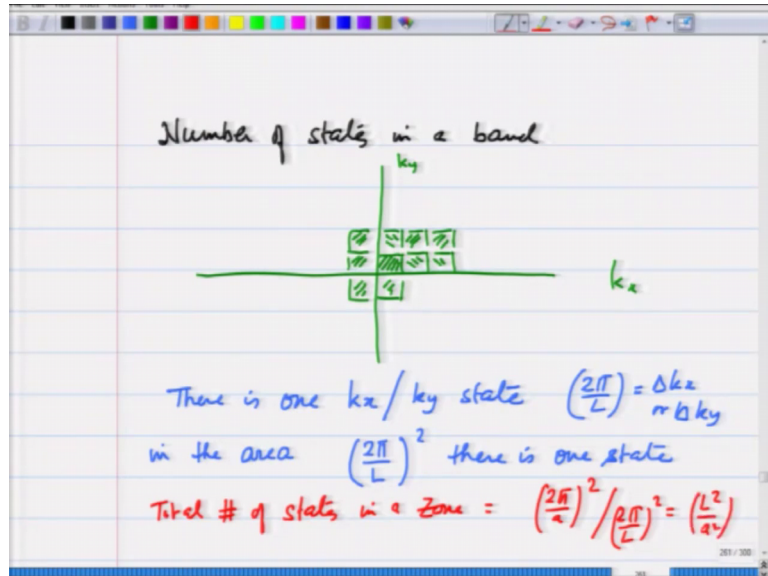 Number of states in a band
ky
kx
There is one kx / ky state (2π/L) = Δkx
or Δky
in the area (2π/L)² there is one state
Total # of states in a Zone = (2π/a)² / (2π/L)² = (L²/a²)
261 / 300